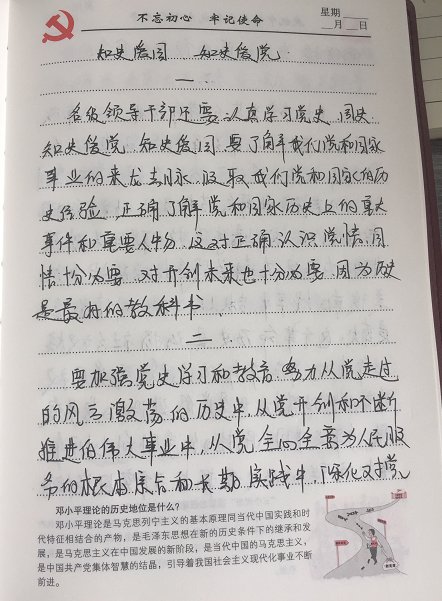 不忘初心 牢记使命
星期
月 日
知史爱国 知史爱党
一
各级领导干部还要认真学习党史、国史,
知史爱党,知史爱国。要了解我们党和国家
事业的来龙去脉,汲取我们党和国家的历
史经验,正确了解党和国家历史上的重大
事件和重要人物。这对正确认识党情、国
情十分必要,对开创未来也十分必要,因为历史
是最好的教科书。
二
要加强党史学习和教育,努力从党走过
的风云激荡的历史中,从党开创和不断
推进的伟大事业中,从党全心全意为人民服
务的根本宗旨和长期实践中,深化对党
邓小平理论的历史地位是什么?
邓小平理论是马克思列宁主义的基本原理同当代中国实践和时
代特征相结合的产物,是毛泽东思想在新的历史条件下的继承和发
展,是马克思主义在中国发展的新阶段,是当代中国的马克思主义,
是中国共产党集体智慧的结晶,引导着我国社会主义现代化事业不断
前进。